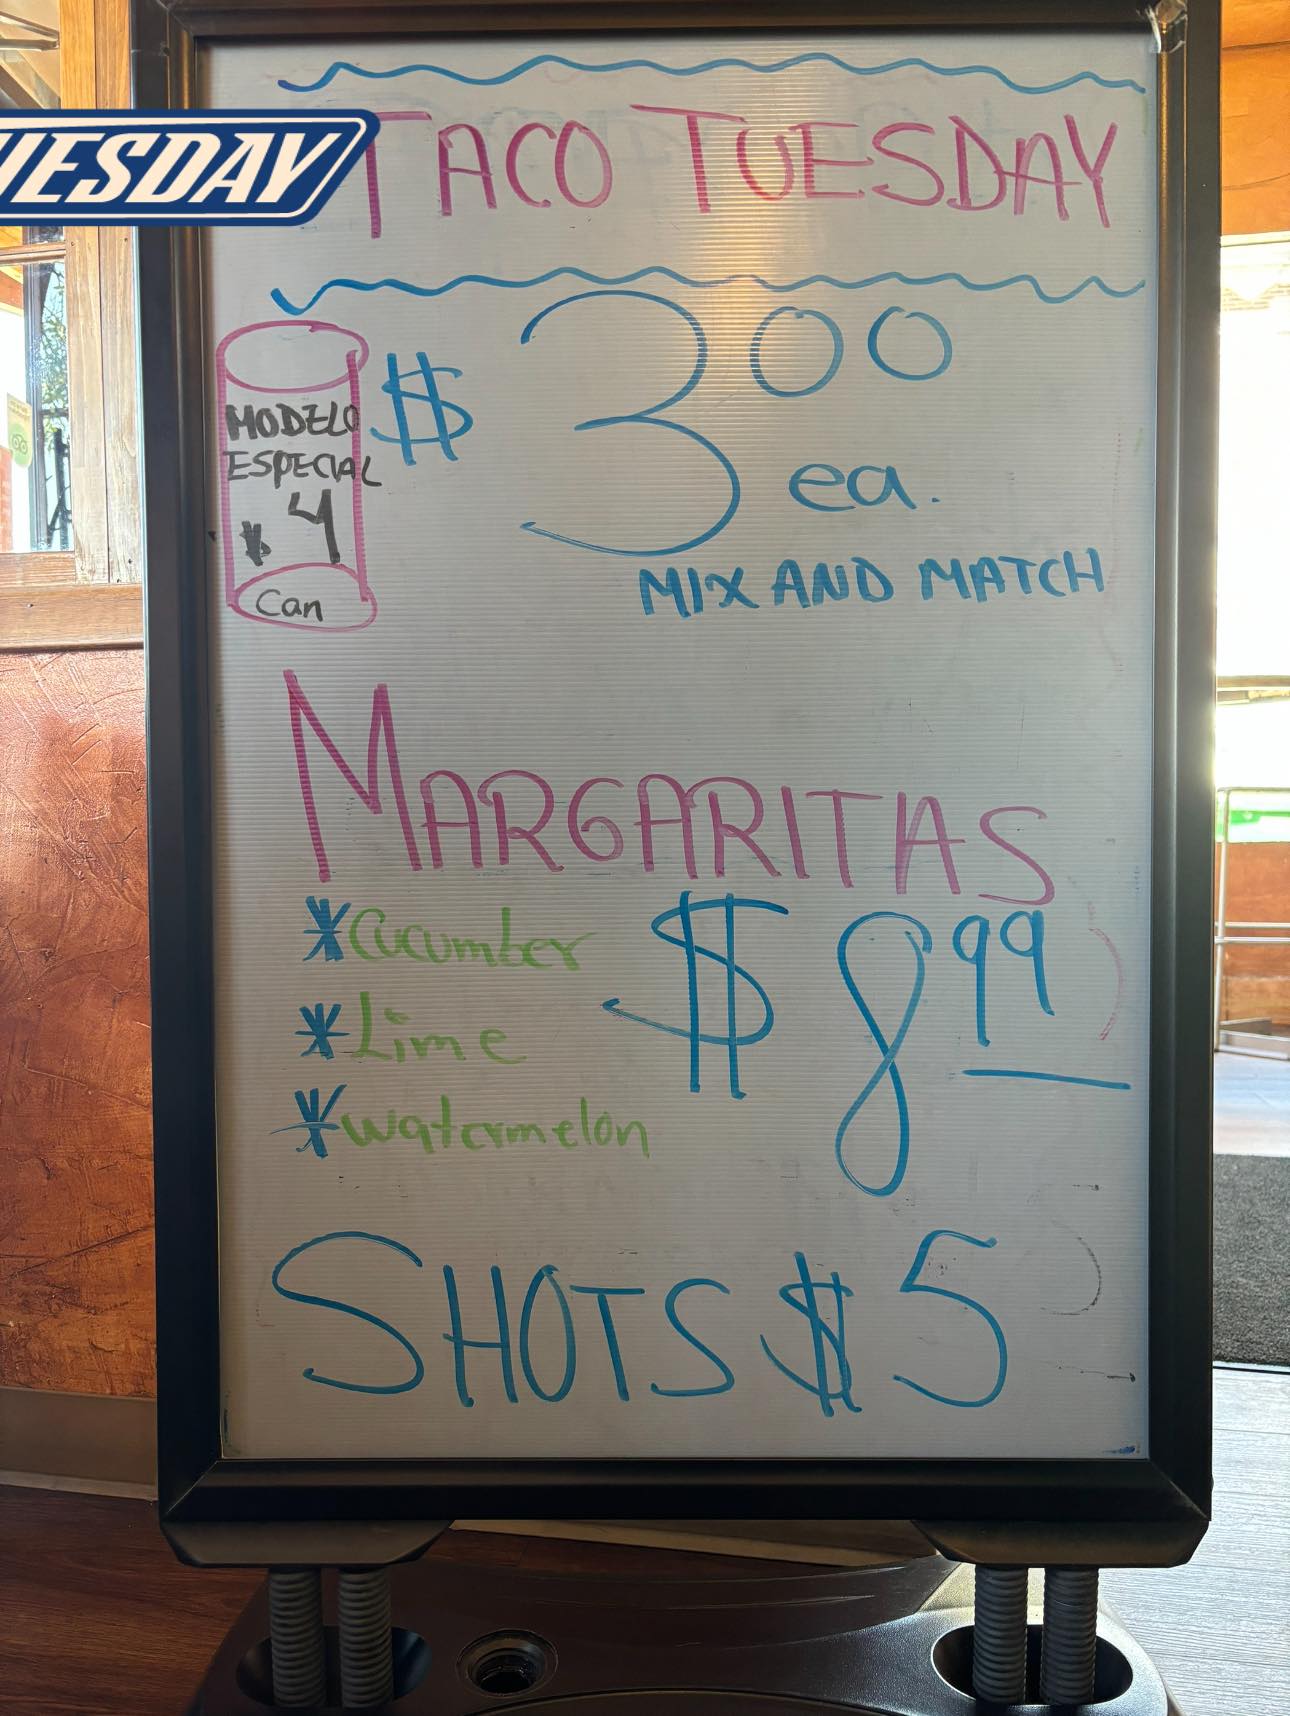 UESDAY
TACO TUESDAY
$ 3 00 ea.
MODELO
ESPECIAL
$ 4
Can
MIX AND MATCH
MARGARITAS
*Cucumber
*Lime
*watermelon
$ 8 99
SHOTS $5